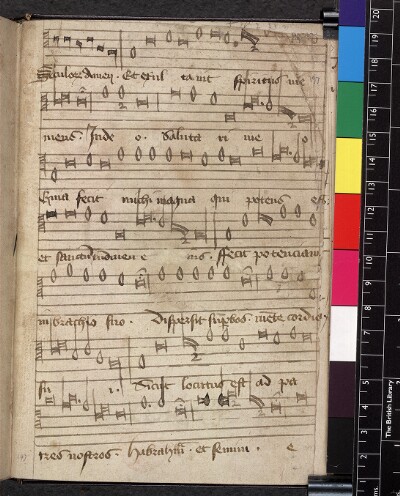 seculorum Amen. Et exul ta uit spiritus me
meus. In de o. Saluta ri me
Quia fecit michi magna qui potens est:
et sanctum nomen e ius. ffecit potenciam
in brachio suo. Dispersit supbos. mete cordis
su i. Sicut locutus est ad pa
tres nostros. habraham. et semini. e
The British Library